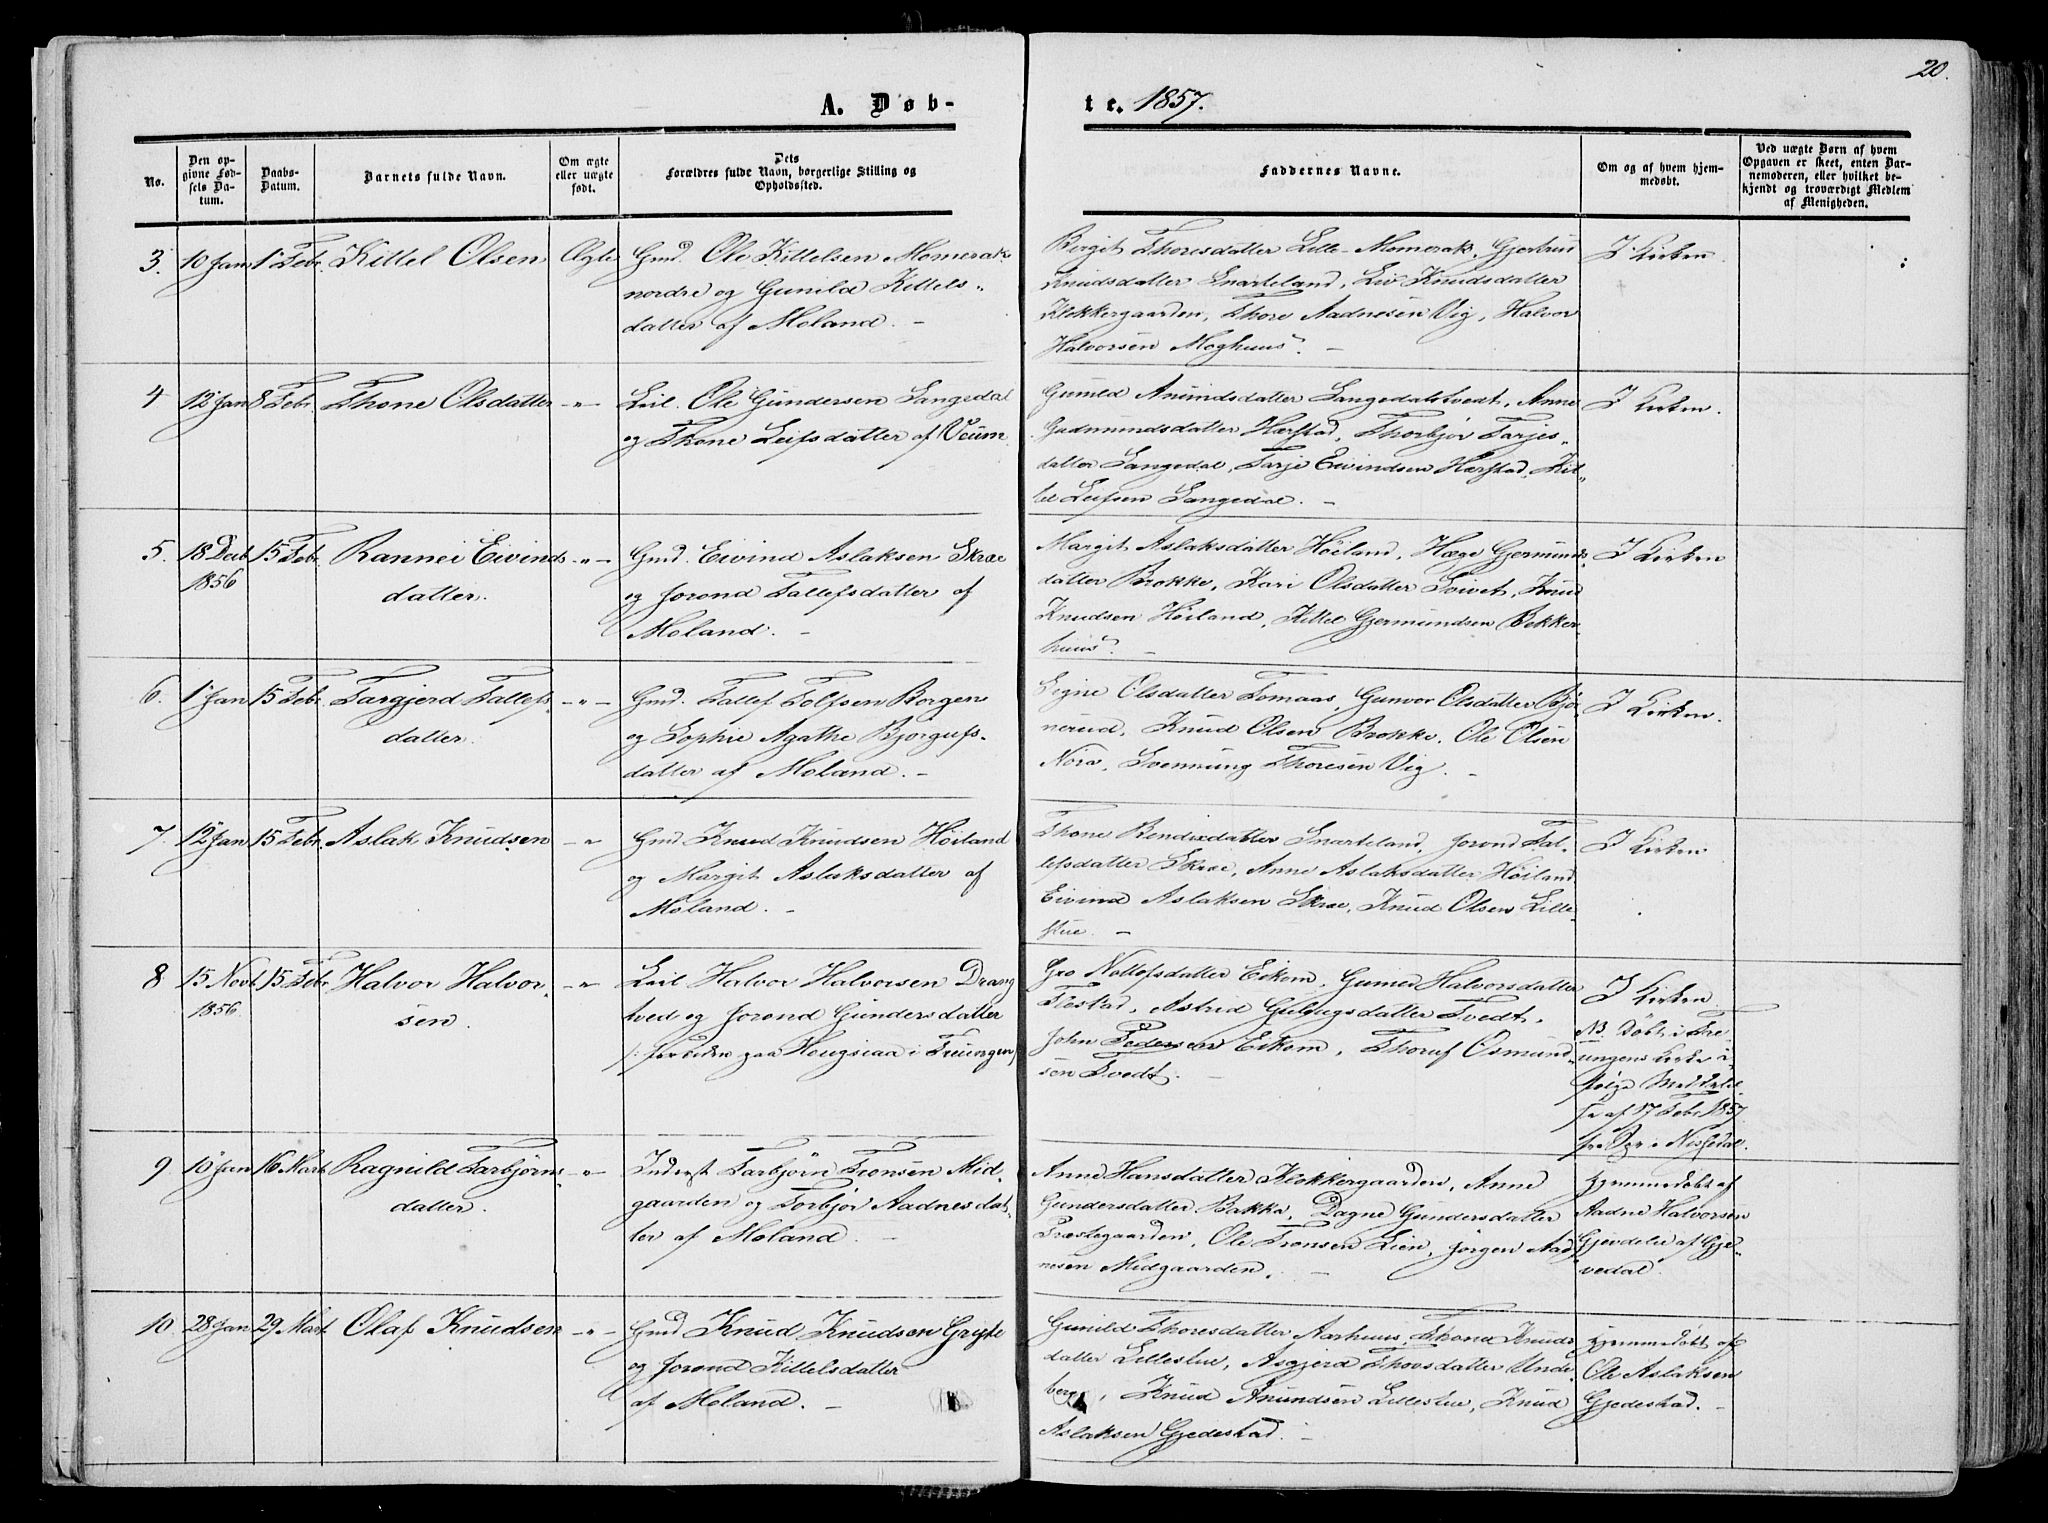 20.
A. Døb-
te. 1857.
No.
Den op-
givne Fød-
sels Da-
tum.
Daabs-
Datum.
Barnets fulde Navn.
Om ægte
eller uægte
født.
Dets
Forældres fulde Navn, borgerlige Stilling og
Opholdssted.
Faddernes Navne.
Om og af hvem hjem-
medøbt.
Ved uægte Børn af hvem
Opgaven er skeet, enten Bar-
nemoderen, eller hvilket be-
kjendt og troværdigt Medlem
af Menigheden.
3. 10 Jan 1 Febr. Kittel Olsen Ægte Gmd. Ole Kittelsen Momerak
nordre og Gunild Kittels-
datter af Moland. -
Birgit Thoresdatter Lille-Momerak, Gjertrud
Knudsdatter Snarteland, Liv Knudsdatter
Klokkergaarden, Thore Aadnesen Vig, Halvor
Halvorsen Moghuus. -
I Kirken.
4 12 Jan 8 Febr. Thone Olsdatter -"- Leil. Ole Gundersen Langedal
og Thone Leifsdatter af Veum
Gunild Anundsdatter Langedalstvedt, Anne
Gudmundsdatter Hærstad, Thorbjør Tarjes-
datter Langedal, Tarje Eivindsen Hærstad, Kit-
tel Leifsen Langedal. -
I Kirken.
5. 18 Decb 15 Febr. Rannei Eivinds -"- Gmd. Eivind Aslaksen Skræ
1856 datter. og Jorond Tallefsdatter af
Moland. -
Margit Aslaksdatter Høiland, Hæge Gjermunds-
datter Brokke, Kari Olsdatter Soivet, Knud
Knudsen Høiland, Kittel Gjermundsen Bekker-
huus. -
I Kirken
6. 1 Jan 15 Febr. Targjerd Tallefs -"- Gmd. Tallef Tolfsen Borgen
datter. og Sophie Agathe Bjorgufs-
datter af Moland. -
Signe Olsdatter Tomaas, Gunvor Olsdatter Bjør-
nerud, Knud Olsen Brokke, Ole Olsen
Nora, Svennung Thoresen Vig. -
I Kirken.
7. 12 Jan 15 Febr. Aslak Knudsen -"- Gmd Knud Knudsen Høiland
og Margit Aslaksdatter af
Moland. -
Thone Bendixdatter Snarteland, Jorond Tal-
lefsdatter Skræ, Anne Aslaksdatter Høiland
Eivind Aslaksen Skræ, Knud Olsen Lille-
stue. -
I Kirken
8 15 Novb 15 Febr Halvor Halvor- -"- Leil Halvor Halvorsen Drang
1856. sen. tved og Jorond Gundersdatter
paa Hougsiaa i Treungen
Gro Nottofsdatter Eikom, Gunild Halvorsdatter
Flostad, Astrid Gulugsdatter Tvedt,
John Pedersen Eikom, Thoruf Osmund-
sen Tvedt. -
I Kirken
NB. Døbt i Tre-
ungens Kirke i-
følge Meddelel-
se af 17 Febr 1857
fra Spr i Nissedal.
9. 10 Jan 16 Marts Ragnild Tarbjørns -"- Inderst Tarbjørn Tronsen Mid-
datter. gaarden og Torbjør Aadnesdat-
ter af Moland. -
Anne Hansdatter Klokkergaarden, Anne
Gundersdatter Bakka, Dagne Gundersdatter
Præstegaarden, Ole Tronsen Lien, Jørgen Aad
nesen Midgaarden. -
Hjemmedøbt af
Aadne Halvorsen
Gjevdelie af Gje-
vedal.
10 28 Jan 29 Mart. Olaf Knudsen -"- Gmd Knud Knudsen Grytte
og Jorond Kittelsdatter
af Moland. -
Gunild Thoresdatter Aarhuus, Thone Knuds
datter Lillestue, Asgjerd Thovsdatter Unde-
berg, Knud Anundsen Lillestue, Knud
Aslaksen Gjedestad. -
Hjemmedøbt af
Ole Aslaksen
Gjedestad. -